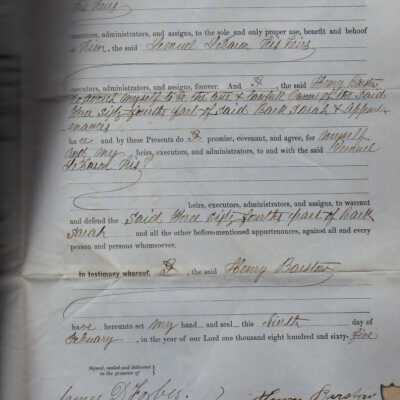 his heirs
executors, administrators, and assigns, to the sole and only proper use, benefit and behoof
him, the said Lemuel his heirs
executors, administrators, and assigns, forever. And I the said Henry Barstow
do avouch myself to be the true & lawfull Owner of the said
One sixty fourth part of said Bark Sarah & Appur-
nances
have and by these Presents do I promise, covenant, and agree, for myself
and my heirs, executors, and administrators, to and with the said Lemuel
his
heirs, executors, administrators, and assigns, to warrant
and defend the said One sixty fourth part of bark
Sarah and all the other before-mentioned appurtenances, against all and every
person and persons whomsoever.
In testimony whereof, I, the said Henry Barstow
have hereunto set my hand and seal this day of
February, in the year of our Lord one thousand eight hundred and sixty-five
Signed, sealed and delivered
in the presence of
James D Forbes. Henry Barstow